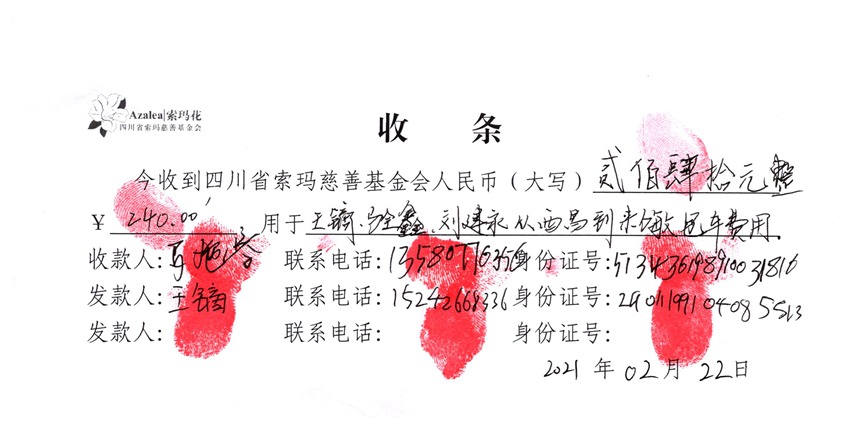 Azalea|索玛花
四川省索玛慈善基金会
收 条
今收到四川省索玛慈善基金会人民币（大写）贰佰肆拾元整
￥240.00, 用于王镝、马全鑫、刘建永从西昌到米 包车费用.
收款人:马 联系电话:13580776356身份证号:513436198910031816
发款人:王镝 联系电话:15242668336身份证号:2101199104085513
发款人: 联系电话: 身份证号:
2021 年 02 月 22日